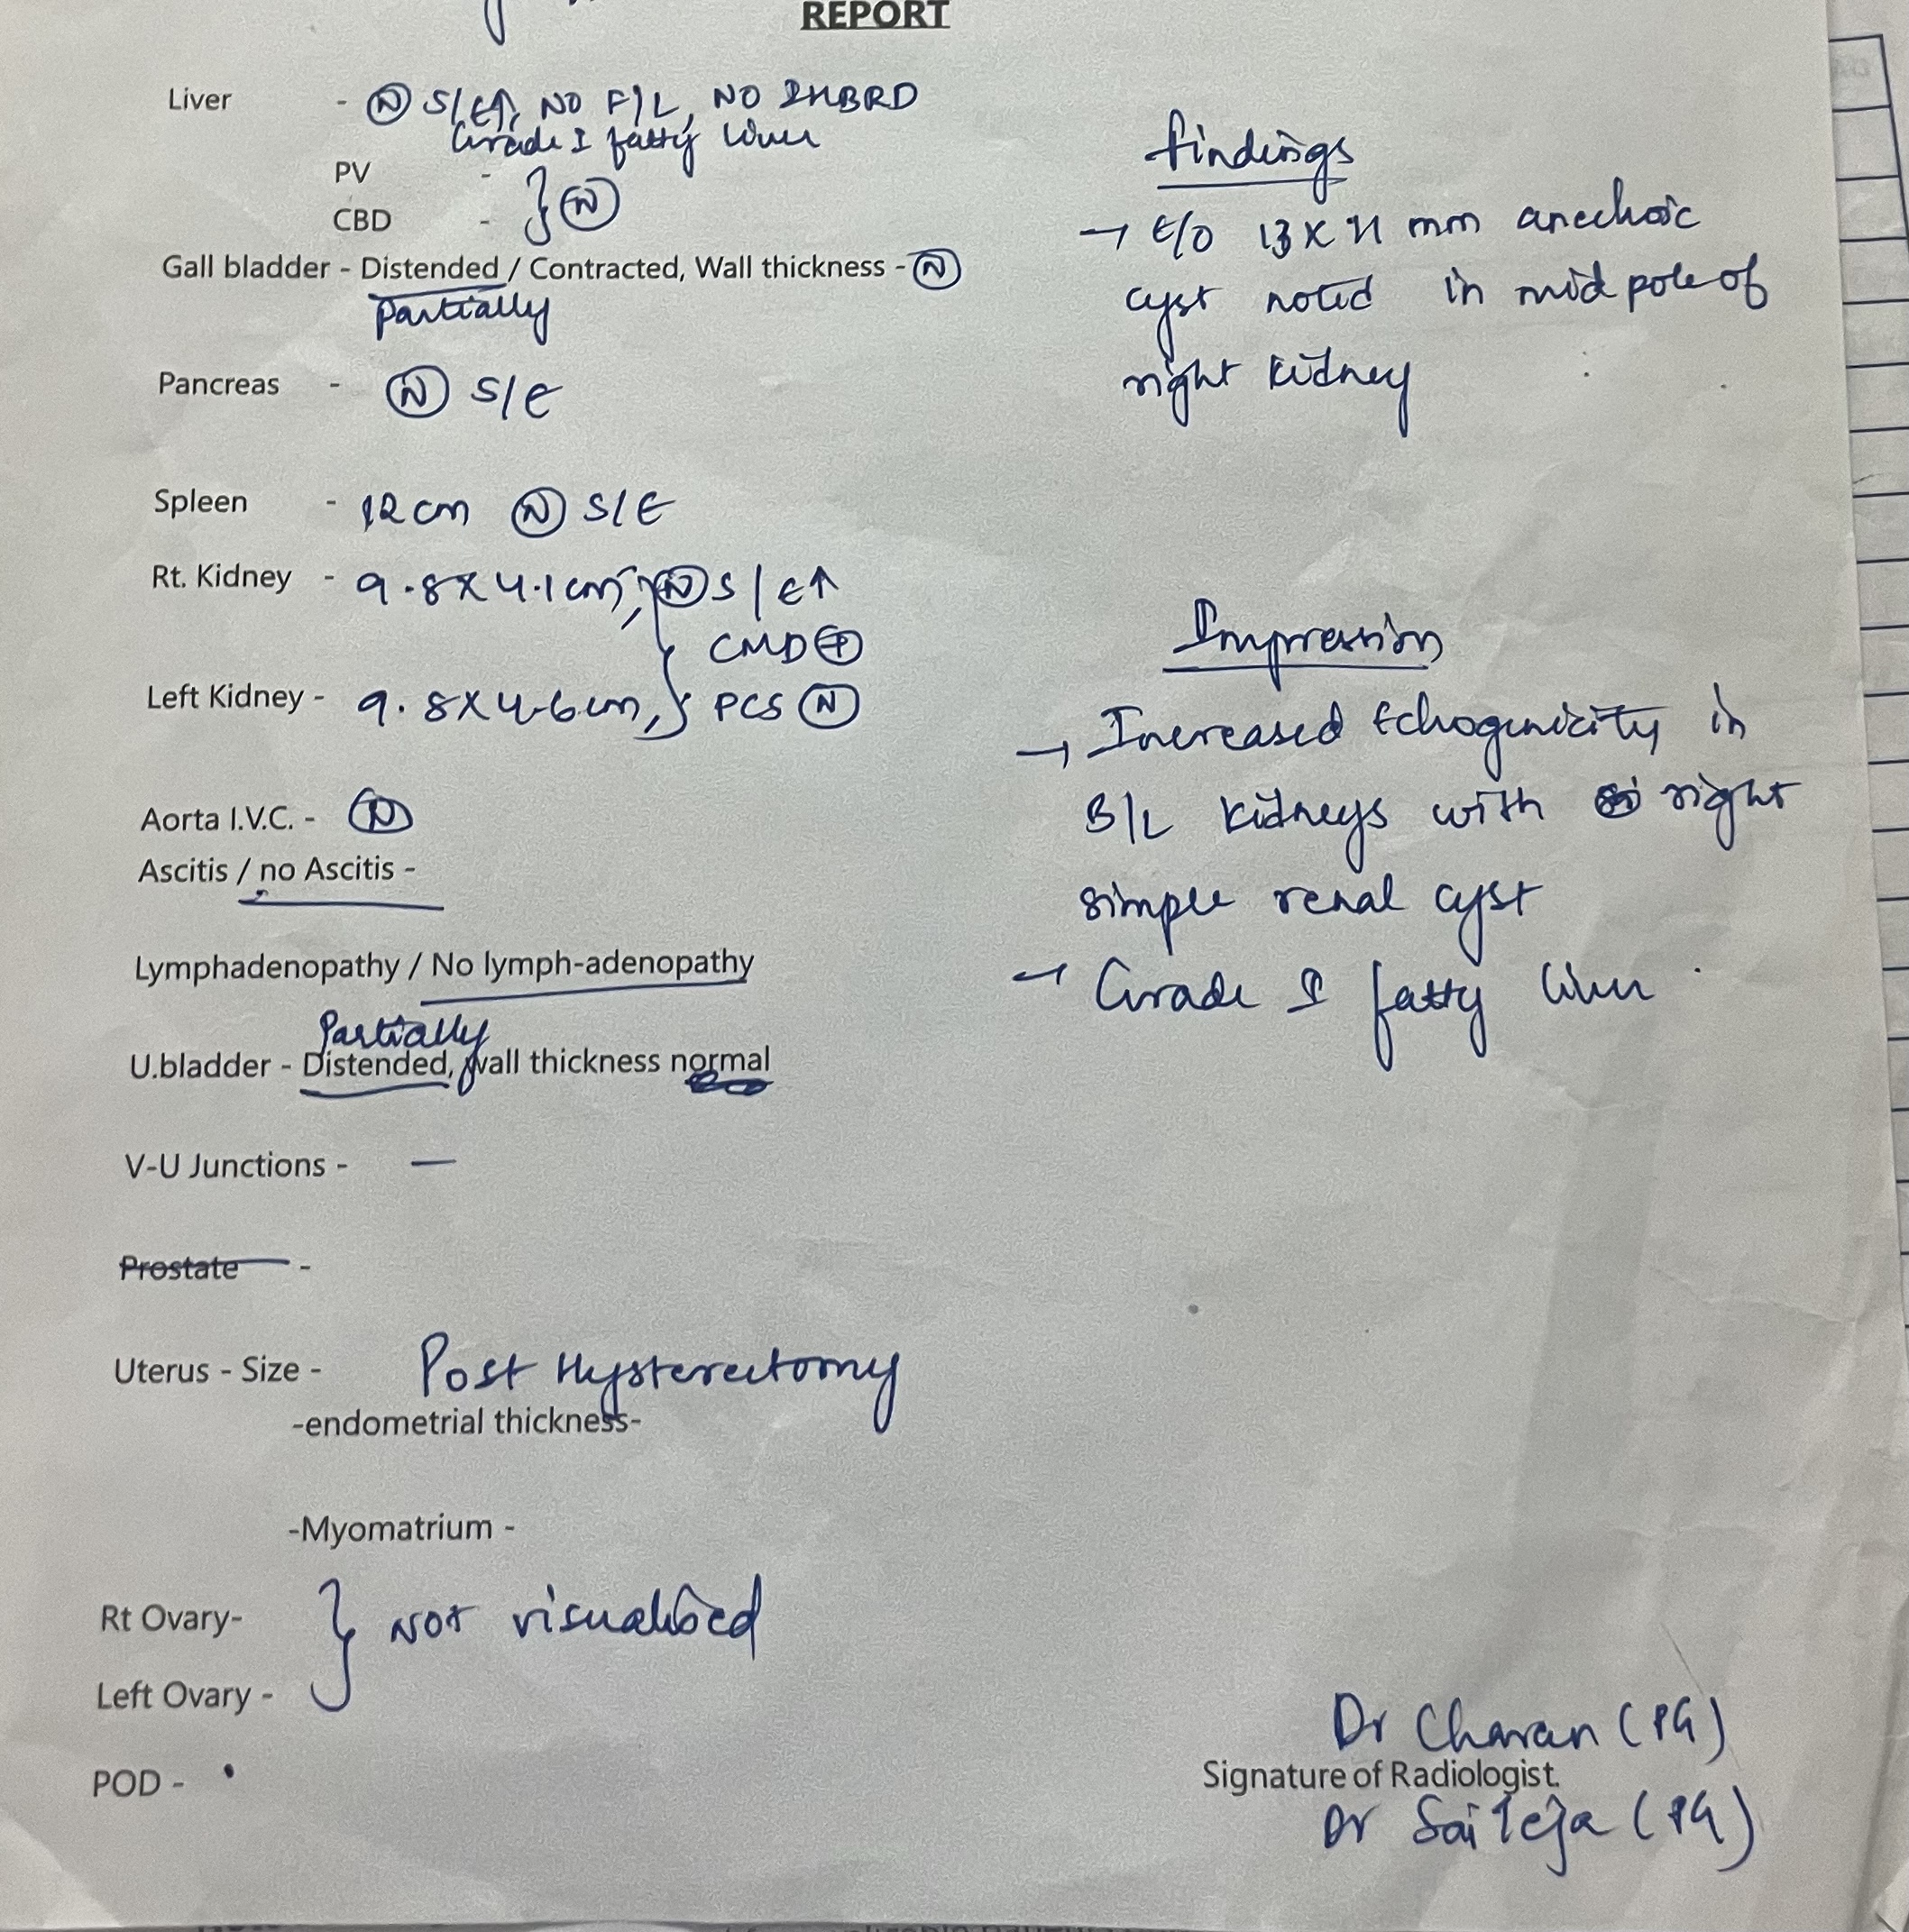 REPORT
Liver - Ⓝ S/E↑, NO F/L, NO IHBRD
Grade I fatty liver
PV -
CBD - } Ⓝ
Gall bladder - Distended / Contracted, Wall thickness - Ⓝ
Partially
Pancreas - Ⓝ S/E
Spleen - 12 cm Ⓝ S/E
Rt. Kidney - 9.8X4.1cm, Ⓝ S/E↑
CMD ⊕
Left Kidney - 9.8X4.6cm, } PCS Ⓝ
Aorta I.V.C. - Ⓝ
Ascitis / no Ascitis -
Lymphadenopathy / No lymph-adenopathy
Partially
U.bladder - Distended, wall thickness normal
V-U Junctions - —
Prostate -
Uterus - Size - Post Hysterectomy
-endometrial thickness-
-Myomatrium -
Rt Ovary-
} Not visualised
Left Ovary -
POD -
findings
→ E/O 13 X 11 mm anechoic
cyst noted in mid pole of
right kidney
Impression
→ Increased Echogenicity in
B/L kidneys with right
simple renal cyst
→ Grade I fatty liver
Dr Charan (PG)
Signature of Radiologist.
Dr Sai Teja (PG)